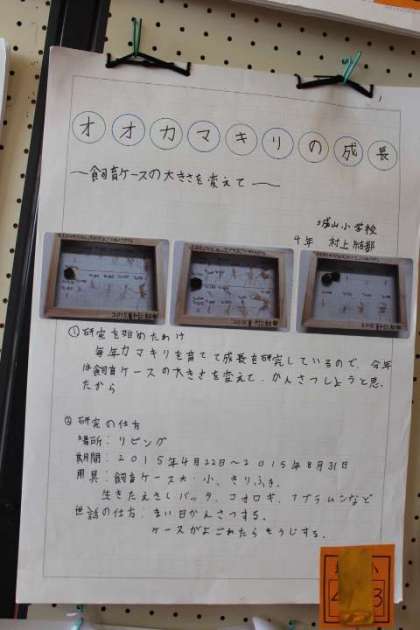 オオカマキリの成長
―飼育ケースの大きさを変えて―
城山小学校
4年 村上結都
①研究を始めたわけ
毎年カマキリを育てて成長を研究しているので、今年
は飼育ケースの大きさを変えて、かんさつしようと思っ
たから
②研究の仕方
場所:リビング
期間:2015年4月22日~2015年8月31日
用具:飼育ケース大・小、きりふき、
生きたえさ(バッタ、コオロギ、アブラムシなど
世話の仕方:まい日かんさつする。
ケースがよごれたらそうじする。